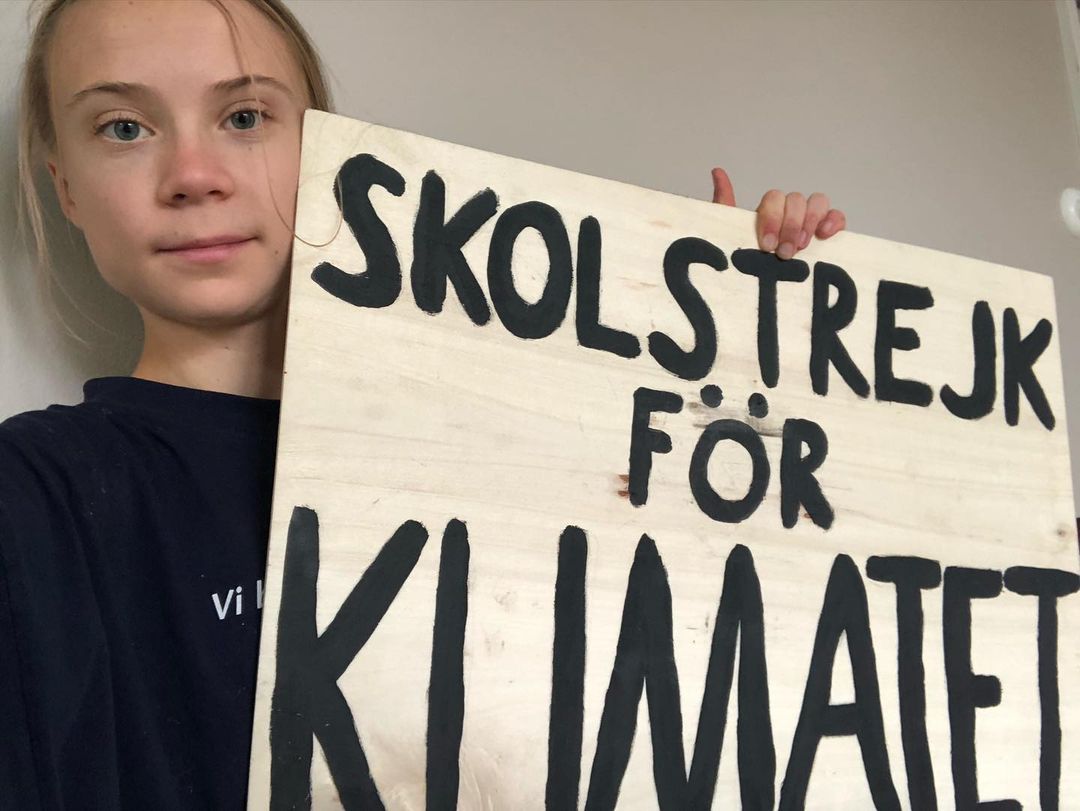 SKOLSTREJK
FÖR
KLIMATET
Vi